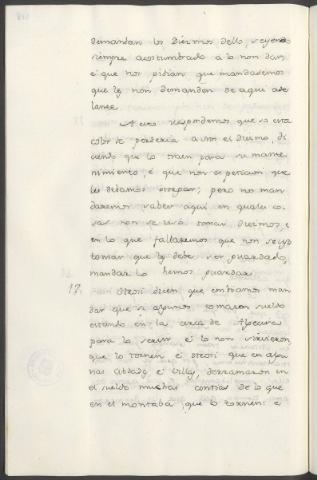 demandan los Diezmos dello, seyendo
siempre acostumbrado a lo non dar,
é que nos pidian que mandasemos
que lo non demanden de aqui ade
lante.
A esto respondemos que so esta
color se perderia a Nos el diezmo, di
ciendo que lo traen para su mante
nimiento, é que non es petición que
les debamos otorgar; pero Nos man
daremos saber aqui en quales co
sas non se usó tomar diezmos, é
en lo que fallaremos que non se usó
tomar que lo debe ser guardado,
mandar lo hemos guardar.
17. Otrosi dicen que enbiamos man
dar que si algunos tomaron sueldo
estando en la cerca de Algecira
para la servir é lo non sirvieron
que lo tornen: é otrosi que en algu
nas Cibdades é Villas, derramaron en
el sueldo muchas contias de lo que
en el montaba, que lo tornen: é